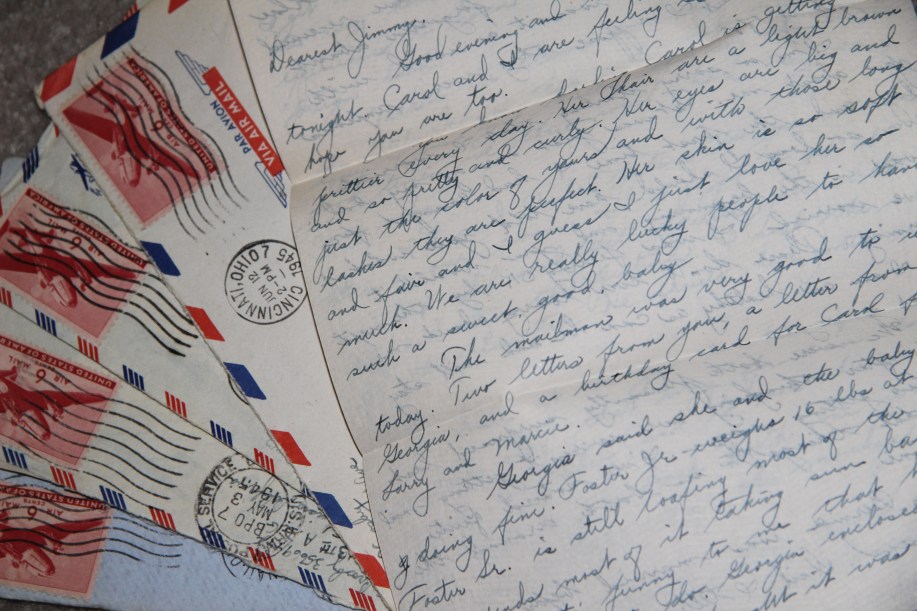 Dearest Jimmy,
Good evening and
tonight. Carol and I are feeling
hope you are too. Carol is getting
prettier every day. Her hair are a light brown
and so pretty and curly. Her eyes are big and
just the color of yours and with those long
lashes they are perfect. Her skin is so soft
and fair and I guess I just love her so
much. We are really lucky people to have
such a sweet, good, baby.
The mailman was very good to
today. Two letters from you, a letter from
Georgia, and a birthday card for Carol
Larry and Marcie.
Georgia said she and the baby
doing fine. Foster Jr weighs 16 lbs
Foster Sr. is still loafing most of the
most of it taking sun
funny to me that
Georgia enclosed
it was
VIA AIR MAIL
PAR AVION
CINCINNATI, OHIO
JUN 12
2-PM
1945
UNITED STATES OF AMERICA
6¢
AIR MAIL
UNITED STATES OF AMERICA
6¢
AIR MAIL
UNITED STATES OF AMERICA
6¢
AIR MAIL
SERVICE
BPO 7
MAY
3
1945
13TH A